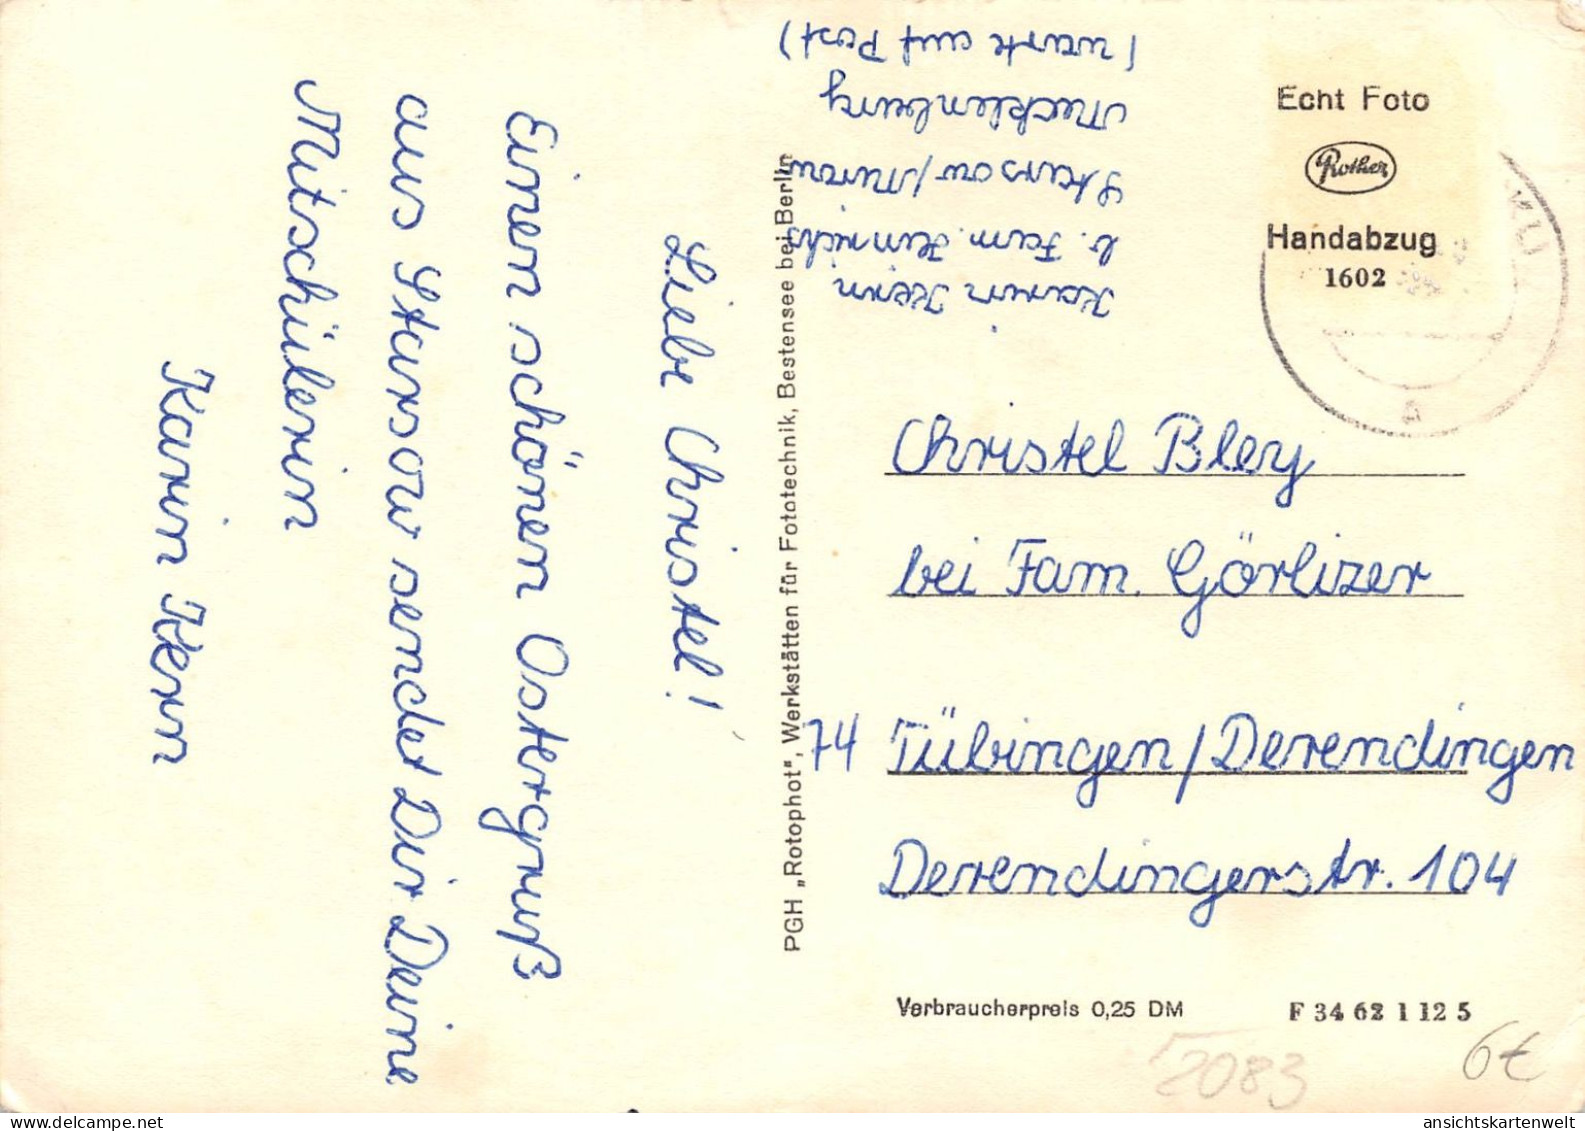 Liebe Christel!
Einen schönen Ostergruß
aus Starsow sendet Dir Deine
Mitschülerin
Karin Kern
PGH „Rotophot", Werkstätten für Fototechnik, Bestensee bei Berlin
Karin Kern
b. Fam. Hinrichs
Starsow/Mirow
Mecklenburg
(warte auf Post)
Echt Foto
Rother
Handabzug
1602
a
Christel Bley
bei Fam. Görlizer
74 Tübingen/Derendingen
Derendingerstr. 104
Verbraucherpreis 0,25 DM
F 34 62 1 12 5
6€
2083
delcampe.net
ansichtskartenwelt